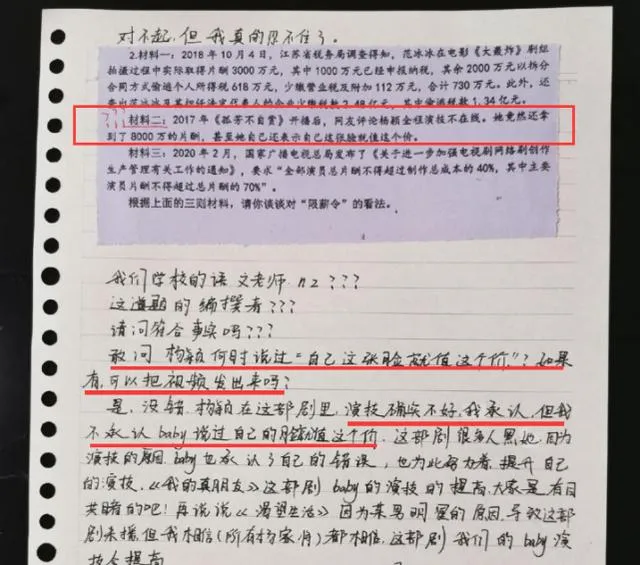 对不起,但我真的忍不住了。
2.材料一:2018年10月4日,江苏省税务局调查得知,范冰冰在电影《大轰炸》剧组
拍摄过程中实际取得片酬3000万元,其中1000万元已经申报纳税,其余2000万元以拆分
合同方式偷逃个人所得税618万元,少缴营业税及附加112万元,合计730万元。此外,还
查出范冰冰及其担任法定代表人的企业少缴税款2.48亿元,其中偷逃税款1.34亿元。
???材料二:2017年《孤芳不自赏》开播后,网友评论杨颖全程演技不在线。她竟然还拿
到了8000万的片酬,甚至她自己还表示自己这张脸就值这个价。
材料三:2020年2月,国家广播电视总局发布了《关于进一步加强电视剧网络剧创作
生产管理有关工作的通知》,要求“全部演员总片酬不得超过制作总成本的40%,其中主要
演员片酬不得超过总片酬的70%”。
根据上面的三则材料,请你谈谈对“限薪令”的看法。
我们学校的语文老师 nz???
这道题的编撰者???
请问符合事实吗???
敢问 杨颖何时说过“自己这张脸就值这个价”?如果
有,可以把视频发出来吗?
是,没错.杨颖在这部剧里,演技确实不好,我承认,但我
不承认baby说过自己的脸值这个价.这部剧很多人黑她,因为
演技的原因.baby也承认了自己的错误,也为此努力着,提升自己
的演技.《我的真朋友》这部剧baby的演技的提高,大家是有目
共睹的吧!再说说《渴望生活》因为某男明星的原因,导致这部
剧未播,但我相信(所有杨家月)都相信,这部剧我们的baby演
技会提高